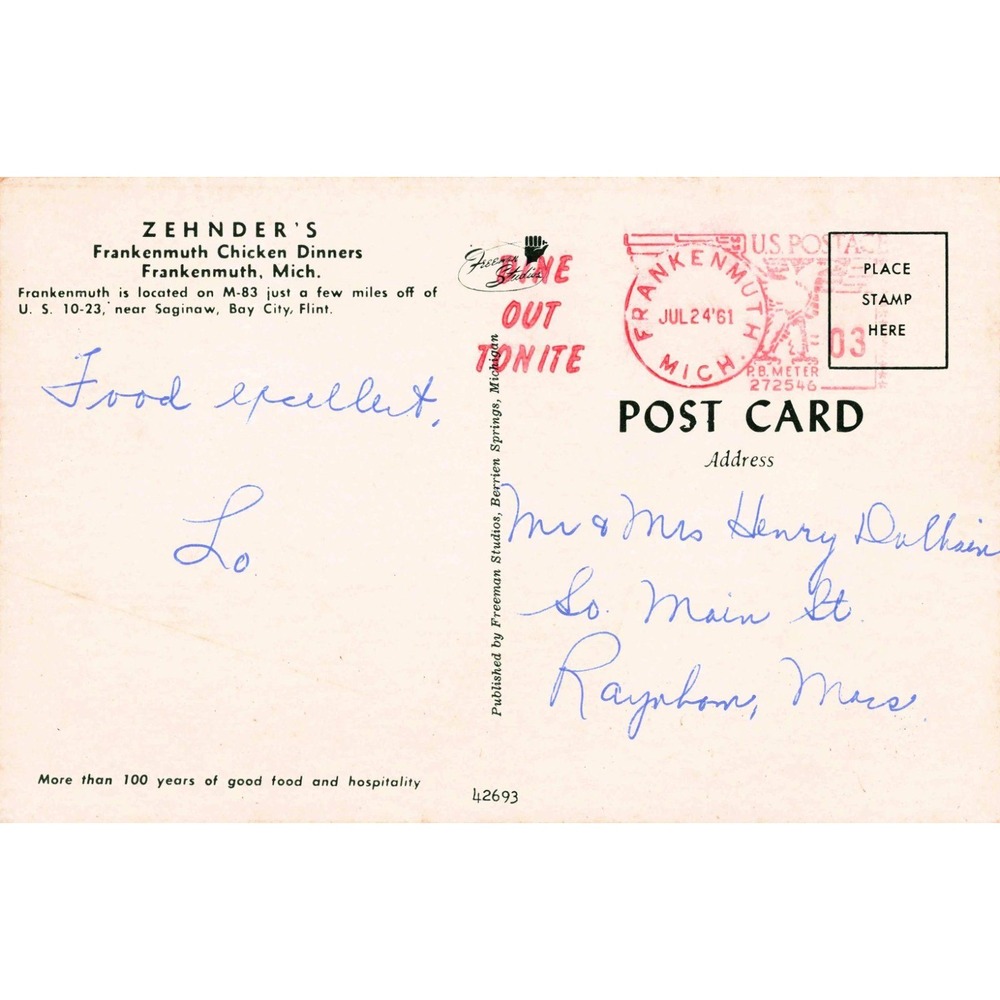 ZEHNDER'S
Frankenmuth Chicken Dinners
Frankenmuth, Mich.
Frankenmuth is located on M-83 just a few miles off of
U. S. 10-23, near Saginaw, Bay City, Flint.
Food excellent.
Lo
More than 100 years of good food and hospitality
Freeman
Studios
DINE
OUT
TONITE
FRANKENMUTH
MICH.
JUL 24 '61
U.S. POSTAGE
03
P.B. METER
272546
PLACE
STAMP
HERE
POST CARD
Address
Mr & Mrs Henry
So. Main St.
Raynham, Mass.
Published by Freeman Studios, Berrien Springs, Michigan
42693